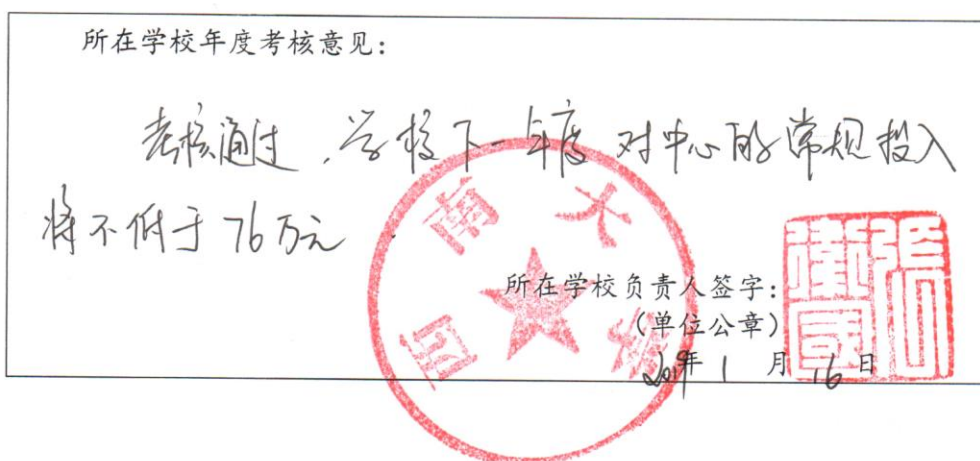 所在学校年度考核意见：
考核通过，学校下一年度对中心的常规投入
将不低于76万元
西南大学
所在学校负责人签字：
（单位公章）
张卫国印
2019年1月16日